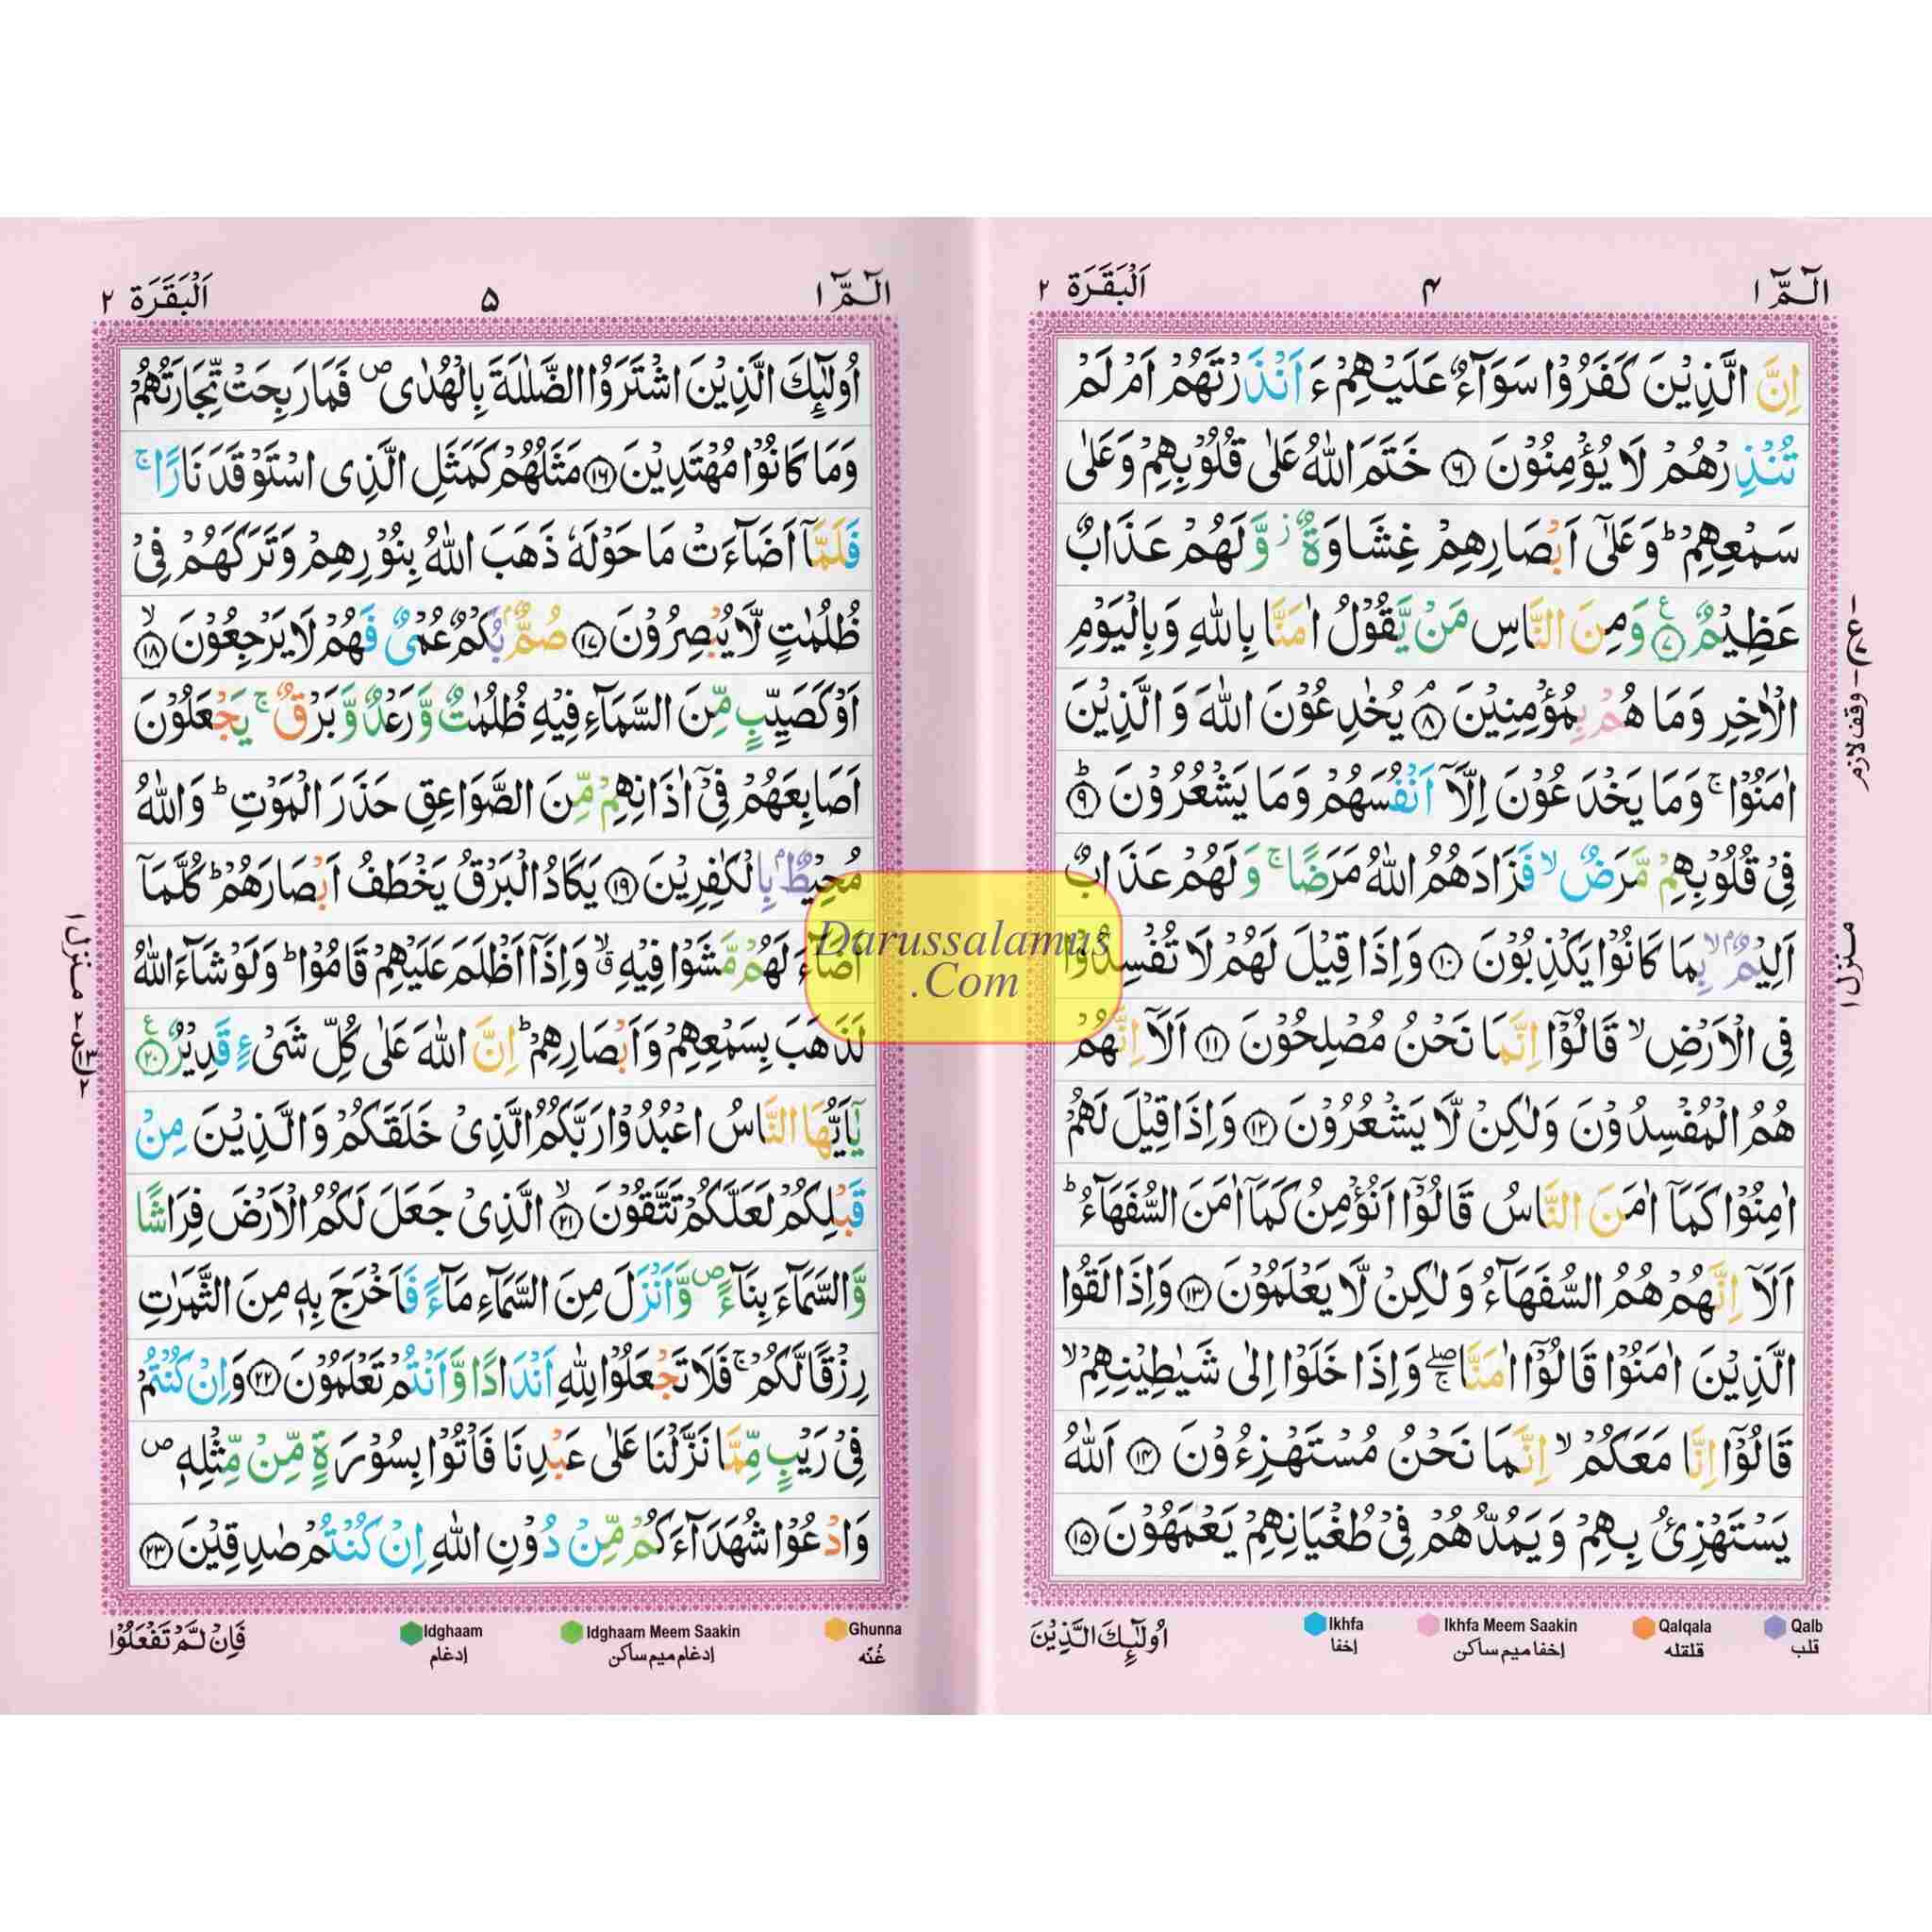 الٓمّٓ ۱
۴
اَلْبَقَرَة ۲
اِنَّ الَّذِیْنَ كَفَرُوْا سَوَآءٌ عَلَیْهِمْ ءَاَنْذَرْتَهُمْ اَمْ لَمْ
تُنْذِرْهُمْ لَا یُؤْمِنُوْنَ ۶ خَتَمَ اللّٰهُ عَلٰی قُلُوْبِهِمْ وَعَلٰی
سَمْعِهِمْ ؕ وَعَلٰۤی اَبْصَارِهِمْ غِشَاوَةٌ ؗ وَّلَهُمْ عَذَابٌ
عَظِیْمٌ ۷ ع وَمِنَ النَّاسِ مَنْ یَّقُوْلُ اٰمَنَّا بِاللّٰهِ وَبِالْیَوْمِ
الْاٰخِرِ وَمَا هُمْ بِمُؤْمِنِیْنَ ۘ ۸ یُخٰدِعُوْنَ اللّٰهَ وَالَّذِیْنَ
اٰمَنُوْا ۚ وَمَا یَخْدَعُوْنَ اِلَّاۤ اَنْفُسَهُمْ وَمَا یَشْعُرُوْنَ ؕ ۹
فِیْ قُلُوْبِهِمْ مَّرَضٌ ۙ فَزَادَهُمُ اللّٰهُ مَرَضًا ۚ وَلَهُمْ عَذَابٌ
اَلِیْمٌۢ ۙ بِمَا كَانُوْا یَكْذِبُوْنَ ۱۰ وَاِذَا قِیْلَ لَهُمْ لَا تُفْسِدُوْا
فِی الْاَرْضِ ۙ قَالُوْۤا اِنَّمَا نَحْنُ مُصْلِحُوْنَ ۱۱ اَلَاۤ اِنَّهُمْ
هُمُ الْمُفْسِدُوْنَ وَلٰكِنْ لَّا یَشْعُرُوْنَ ۱۲ وَاِذَا قِیْلَ لَهُمْ
اٰمِنُوْا كَمَاۤ اٰمَنَ النَّاسُ قَالُوْۤا اَنُؤْمِنُ كَمَاۤ اٰمَنَ السُّفَهَآءُ ؕ
اَلَاۤ اِنَّهُمْ هُمُ السُّفَهَآءُ وَلٰكِنْ لَّا یَعْلَمُوْنَ ۱۳ وَاِذَا لَقُوا
الَّذِیْنَ اٰمَنُوْا قَالُوْۤا اٰمَنَّا ۖۚ وَاِذَا خَلَوْا اِلٰی شَیٰطِیْنِهِمْ ۙ
قَالُوْۤا اِنَّا مَعَكُمْ ۙ اِنَّمَا نَحْنُ مُسْتَهْزِءُوْنَ ۱۴ اَللّٰهُ
یَسْتَهْزِئُ بِهِمْ وَیَمُدُّهُمْ فِیْ طُغْیَانِهِمْ یَعْمَهُوْنَ ۱۵
وقف لازم
منزل ۱
Qalb
قلب
Qalqala
قلقله
Ikhfa Meem Saakin
إخفا ميم ساكن
Ikhfa
إخفا
اُولٰٓئِكَ الَّذِیْنَ
الٓمّٓ ۱
۵
اَلْبَقَرَة ۲
اُولٰٓئِكَ الَّذِیْنَ اشْتَرَوُا الضَّلٰلَةَ بِالْهُدٰی ۪ فَمَا رَبِحَتْ تِّجَارَتُهُمْ
وَمَا كَانُوْا مُهْتَدِیْنَ ۱۶ مَثَلُهُمْ كَمَثَلِ الَّذِی اسْتَوْقَدَ نَارًا ۚ
فَلَمَّاۤ اَضَآءَتْ مَا حَوْلَهٗ ذَهَبَ اللّٰهُ بِنُوْرِهِمْ وَتَرَكَهُمْ فِیْ
ظُلُمٰتٍ لَّا یُبْصِرُوْنَ ۱۷ صُمٌّۢ بُكْمٌ عُمْیٌ فَهُمْ لَا یَرْجِعُوْنَ ۙ ۱۸
اَوْ كَصَیِّبٍ مِّنَ السَّمَآءِ فِیْهِ ظُلُمٰتٌ وَّرَعْدٌ وَّبَرْقٌ ۚ یَجْعَلُوْنَ
اَصَابِعَهُمْ فِیْۤ اٰذَانِهِمْ مِّنَ الصَّوَاعِقِ حَذَرَ الْمَوْتِ ؕ وَاللّٰهُ
مُحِیْطٌۢ بِالْكٰفِرِیْنَ ۱۹ یَكَادُ الْبَرْقُ یَخْطَفُ اَبْصَارَهُمْ ؕ كُلَّمَاۤ
اَضَآءَ لَهُمْ مَّشَوْا فِیْهِ ۙۗ وَاِذَاۤ اَظْلَمَ عَلَیْهِمْ قَامُوْا ؕ وَلَوْ شَآءَ اللّٰهُ
لَذَهَبَ بِسَمْعِهِمْ وَاَبْصَارِهِمْ ؕ اِنَّ اللّٰهَ عَلٰی كُلِّ شَیْءٍ قَدِیْرٌ ۲۰ ع
یٰۤاَیُّهَا النَّاسُ اعْبُدُوْا رَبَّكُمُ الَّذِیْ خَلَقَكُمْ وَالَّذِیْنَ مِنْ
قَبْلِكُمْ لَعَلَّكُمْ تَتَّقُوْنَ ۙ ۲۱ الَّذِیْ جَعَلَ لَكُمُ الْاَرْضَ فِرَاشًا
وَّالسَّمَآءَ بِنَآءً ۪ وَّاَنْزَلَ مِنَ السَّمَآءِ مَآءً فَاَخْرَجَ بِهٖ مِنَ الثَّمَرٰتِ
رِزْقًا لَّكُمْ ۚ فَلَا تَجْعَلُوْا لِلّٰهِ اَنْدَادًا وَّاَنْتُمْ تَعْلَمُوْنَ ۲۲ وَاِنْ كُنْتُمْ
فِیْ رَیْبٍ مِّمَّا نَزَّلْنَا عَلٰی عَبْدِنَا فَاْتُوْا بِسُوْرَةٍ مِّنْ مِّثْلِهٖ ۪
وَادْعُوْا شُهَدَآءَكُمْ مِّنْ دُوْنِ اللّٰهِ اِنْ كُنْتُمْ صٰدِقِیْنَ ۲۳
منزل ۱
Ghunna
غُنّه
Idghaam Meem Saakin
إدغام ميم ساكن
Idghaam
إدغام
فَاِنْ لَّمْ تَفْعَلُوْا
Darussalamus
.Com